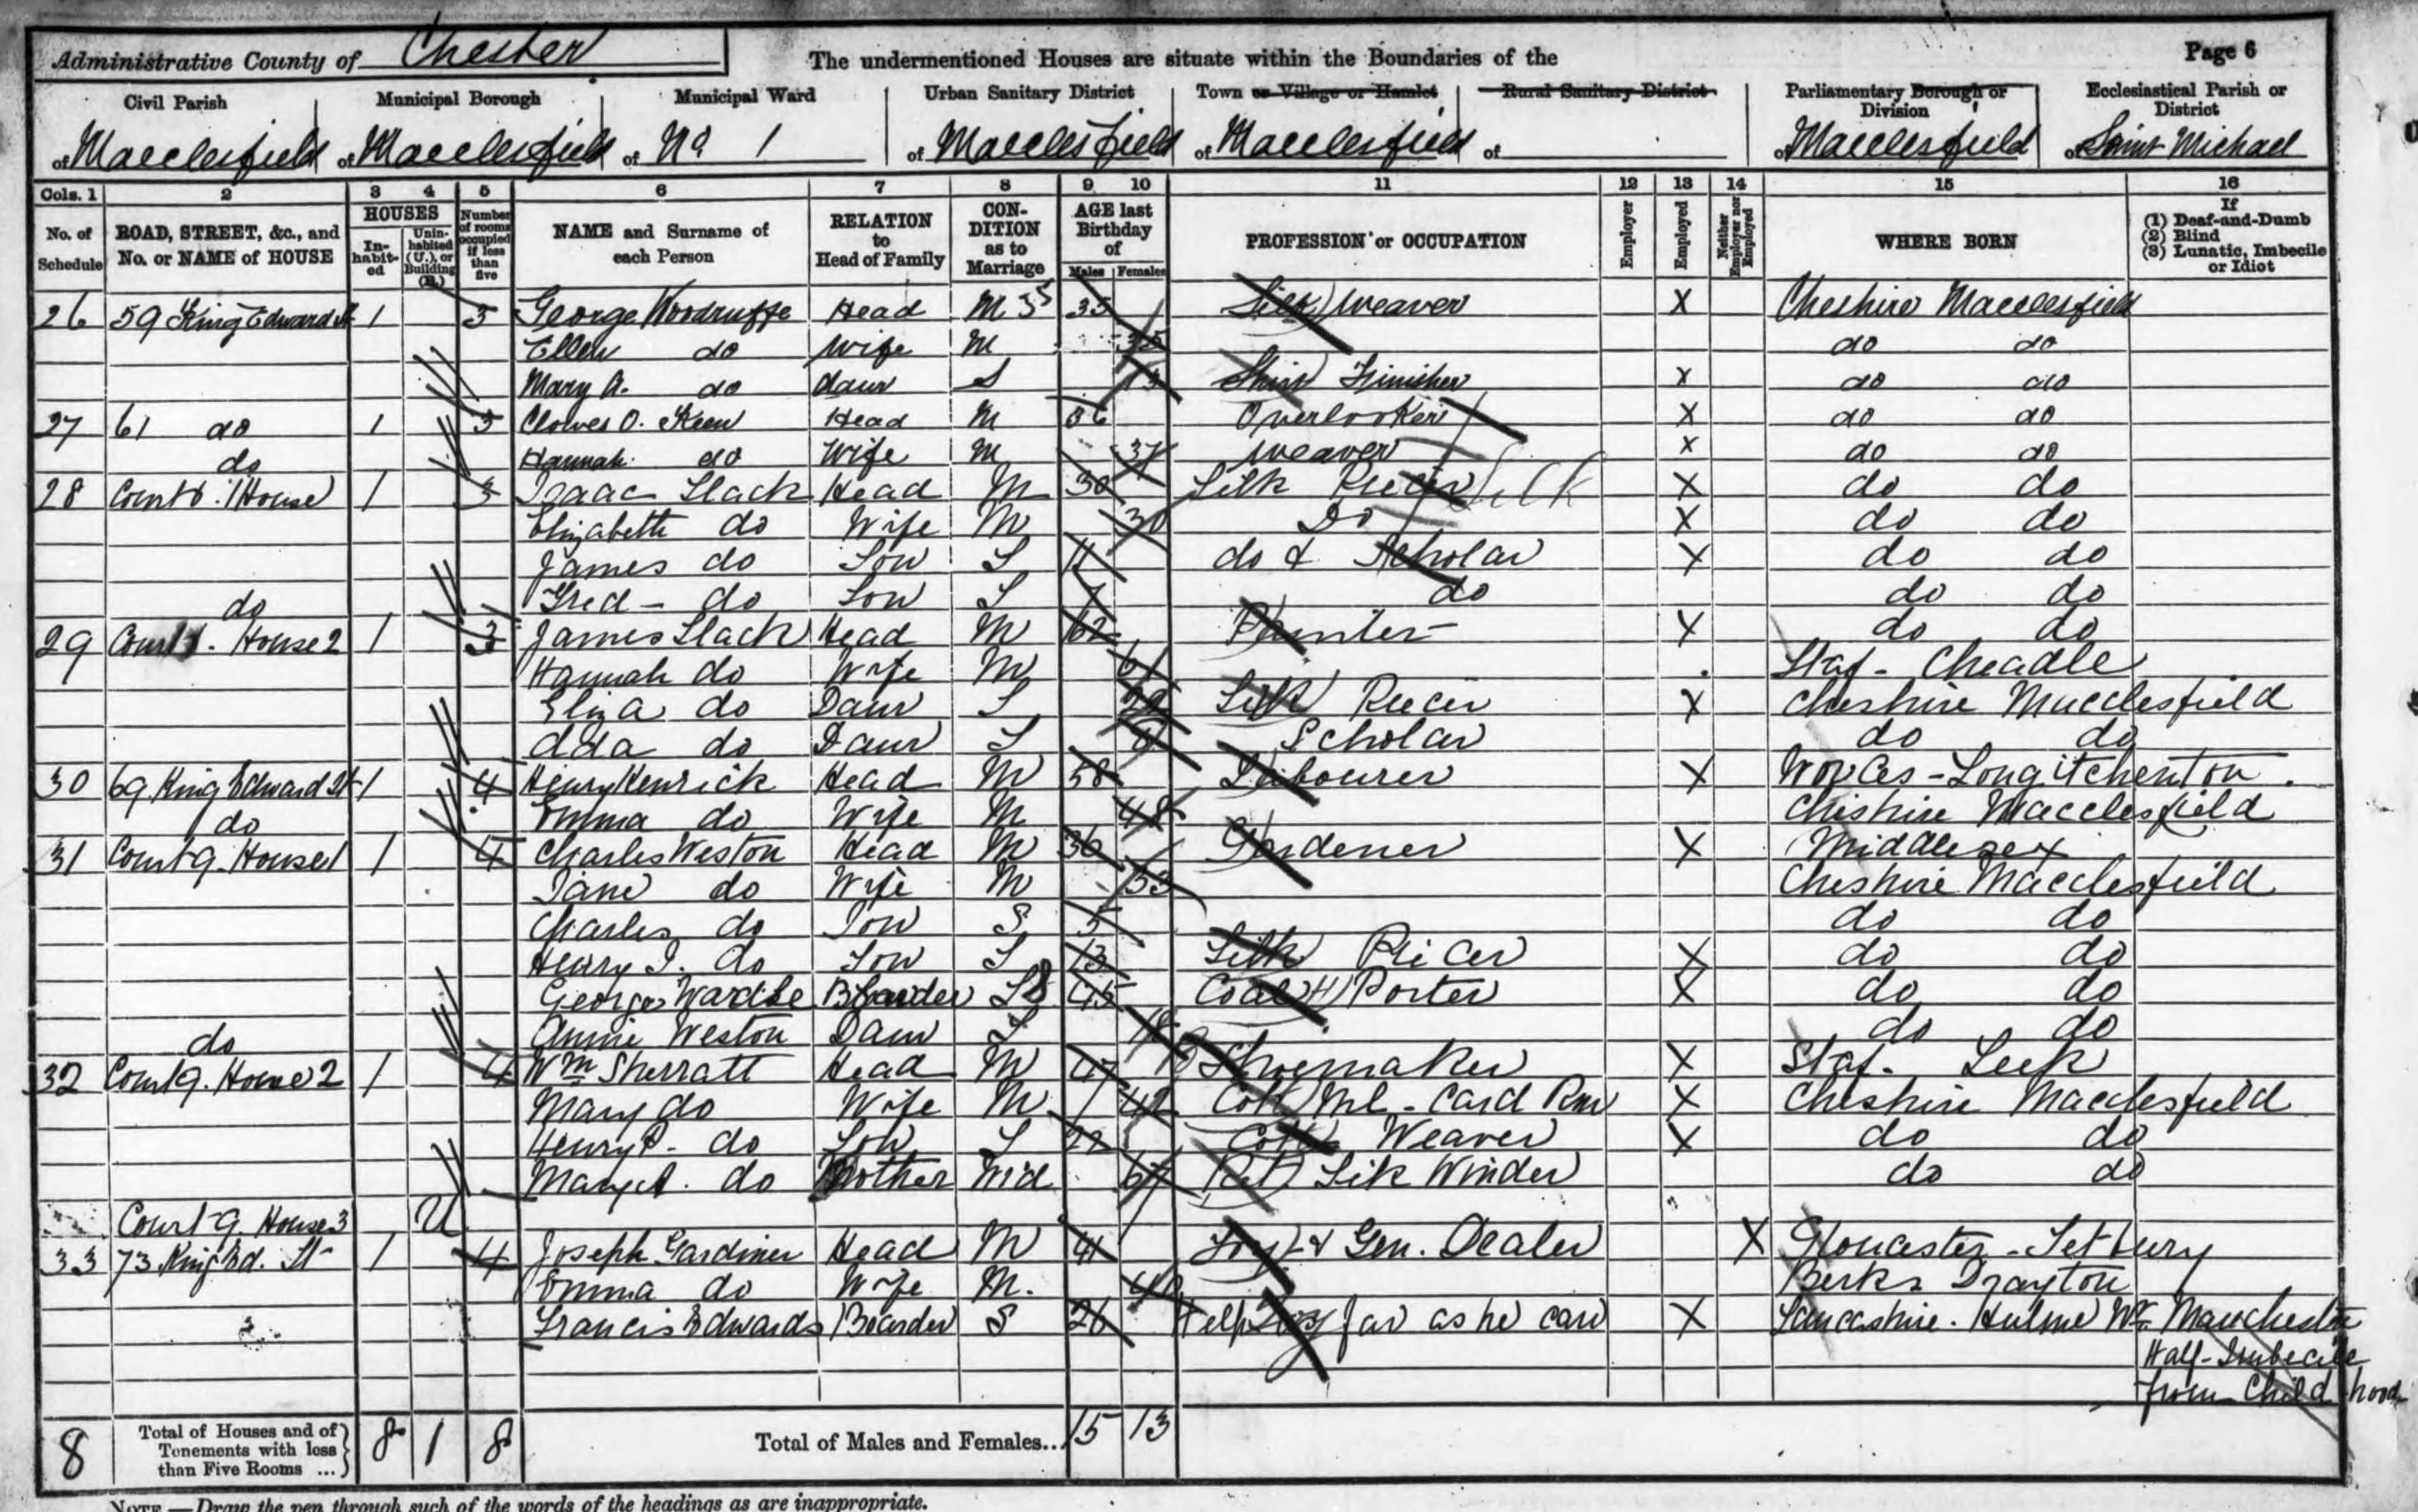 Page 6
Administrative County of Chester
The undermentioned Houses are situate within the Boundaries of the
Civil Parish Municipal Borough Municipal Ward Urban Sanitary District Town or Village or Hamlet Rural Sanitary District Parliamentary Borough or Division Ecclesiastical Parish or District
of Macclesfield of Macclesfield of No 1 of Macclesfield of Macclesfield of of Macclesfield of Saint Michael
Cols. 1 2 3 4 5 6 7 8 9 10 11 12 13 14 15 16
No. of Schedule ROAD, STREET, &c., and No. or NAME of HOUSE HOUSES In-habit-ed Unin-habited (U.), or Building (B.) Number of rooms occupied if less than five NAME and Surname of each Person RELATION to Head of Family CON-DITION as to Marriage AGE last Birthday of Males Females PROFESSION or OCCUPATION Employer Employed Neither Employer nor Employed WHERE BORN If (1) Deaf-and-Dumb (2) Blind (3) Lunatic, Imbecile or Idiot
26 59 King Edward St 1 3 George Woodruffe Head M 35 35 Silk Weaver X Cheshire Macclesfield
Ellen do Wife M 35 do do
Mary A. do daur S 13 Shirt Finisher X do do
27 61 do 1 3 Clowes O. Keen Head M 36 Overlooker X do do
Hannah do Wife M 37 Weaver Silk X do do
do
28 Court 8. 1 House 1 3 Isaac Slack Head M 30 Silk Piecer X do do
Elizabeth do Wife M 30 Do X do do
James do Son S 11 do & Scholar X do do
Fred - do Son S 7 do do do
do
29 Court 8. House 2 1 3 James Slack Head M 62 Painter X do do
Hannah do Wife M 61 Staf - Cheadle
Eliza do Daur S Silk Piecer X Cheshire Macclesfield
Ada do Daur S 8 Scholar do do
30 69 King Edward St 1 4 Henry Kenrick Head M 58 Labourer X Worces - Long Itchenton.
Emma do Wife M 48 Cheshire Macclesfield
do
31 Court 9. House 1 1 4 Charles Weston Head M 36 Gardener X Middlesex
Jane do Wife M 33 Cheshire Macclesfield
Charles do Son S 5 do do
Henry J. do Son S 13 Silk Piecer X do do
George Wardle Boarder S 45 Coal Porter X do do
Annie Weston Daur S do do
do
32 Court 9. House 2 1 4 Wm Sherratt Head M 47 Shoemaker X Staf. Leek
Mary do Wife M 42 Cott Ml - Card Rm X Cheshire Macclesfield
Henry P. do Son S 22 Cott Weaver X do do
Mary A. do Mother Wid 67 Ret Silk Winder do do
Court 9. House 3 U
33 73 King Ed. St 1 4 Joseph Gardiner Head M 41 Toy & Gen. Dealer X Gloucester - Tetbury
Emma do Wife M. 40 Berks Drayton
Francis Edwards Boarder S 26 Help far as he can X Lancashire. Hulme Nr Manchester
Half-Imbecile
from Childhood
8 Total of Houses and of Tenements with less than Five Rooms ... 8 1 8 Total of Males and Females... 15 13
NOTE.—Draw the pen through such of the words of the headings as are inappropriate.